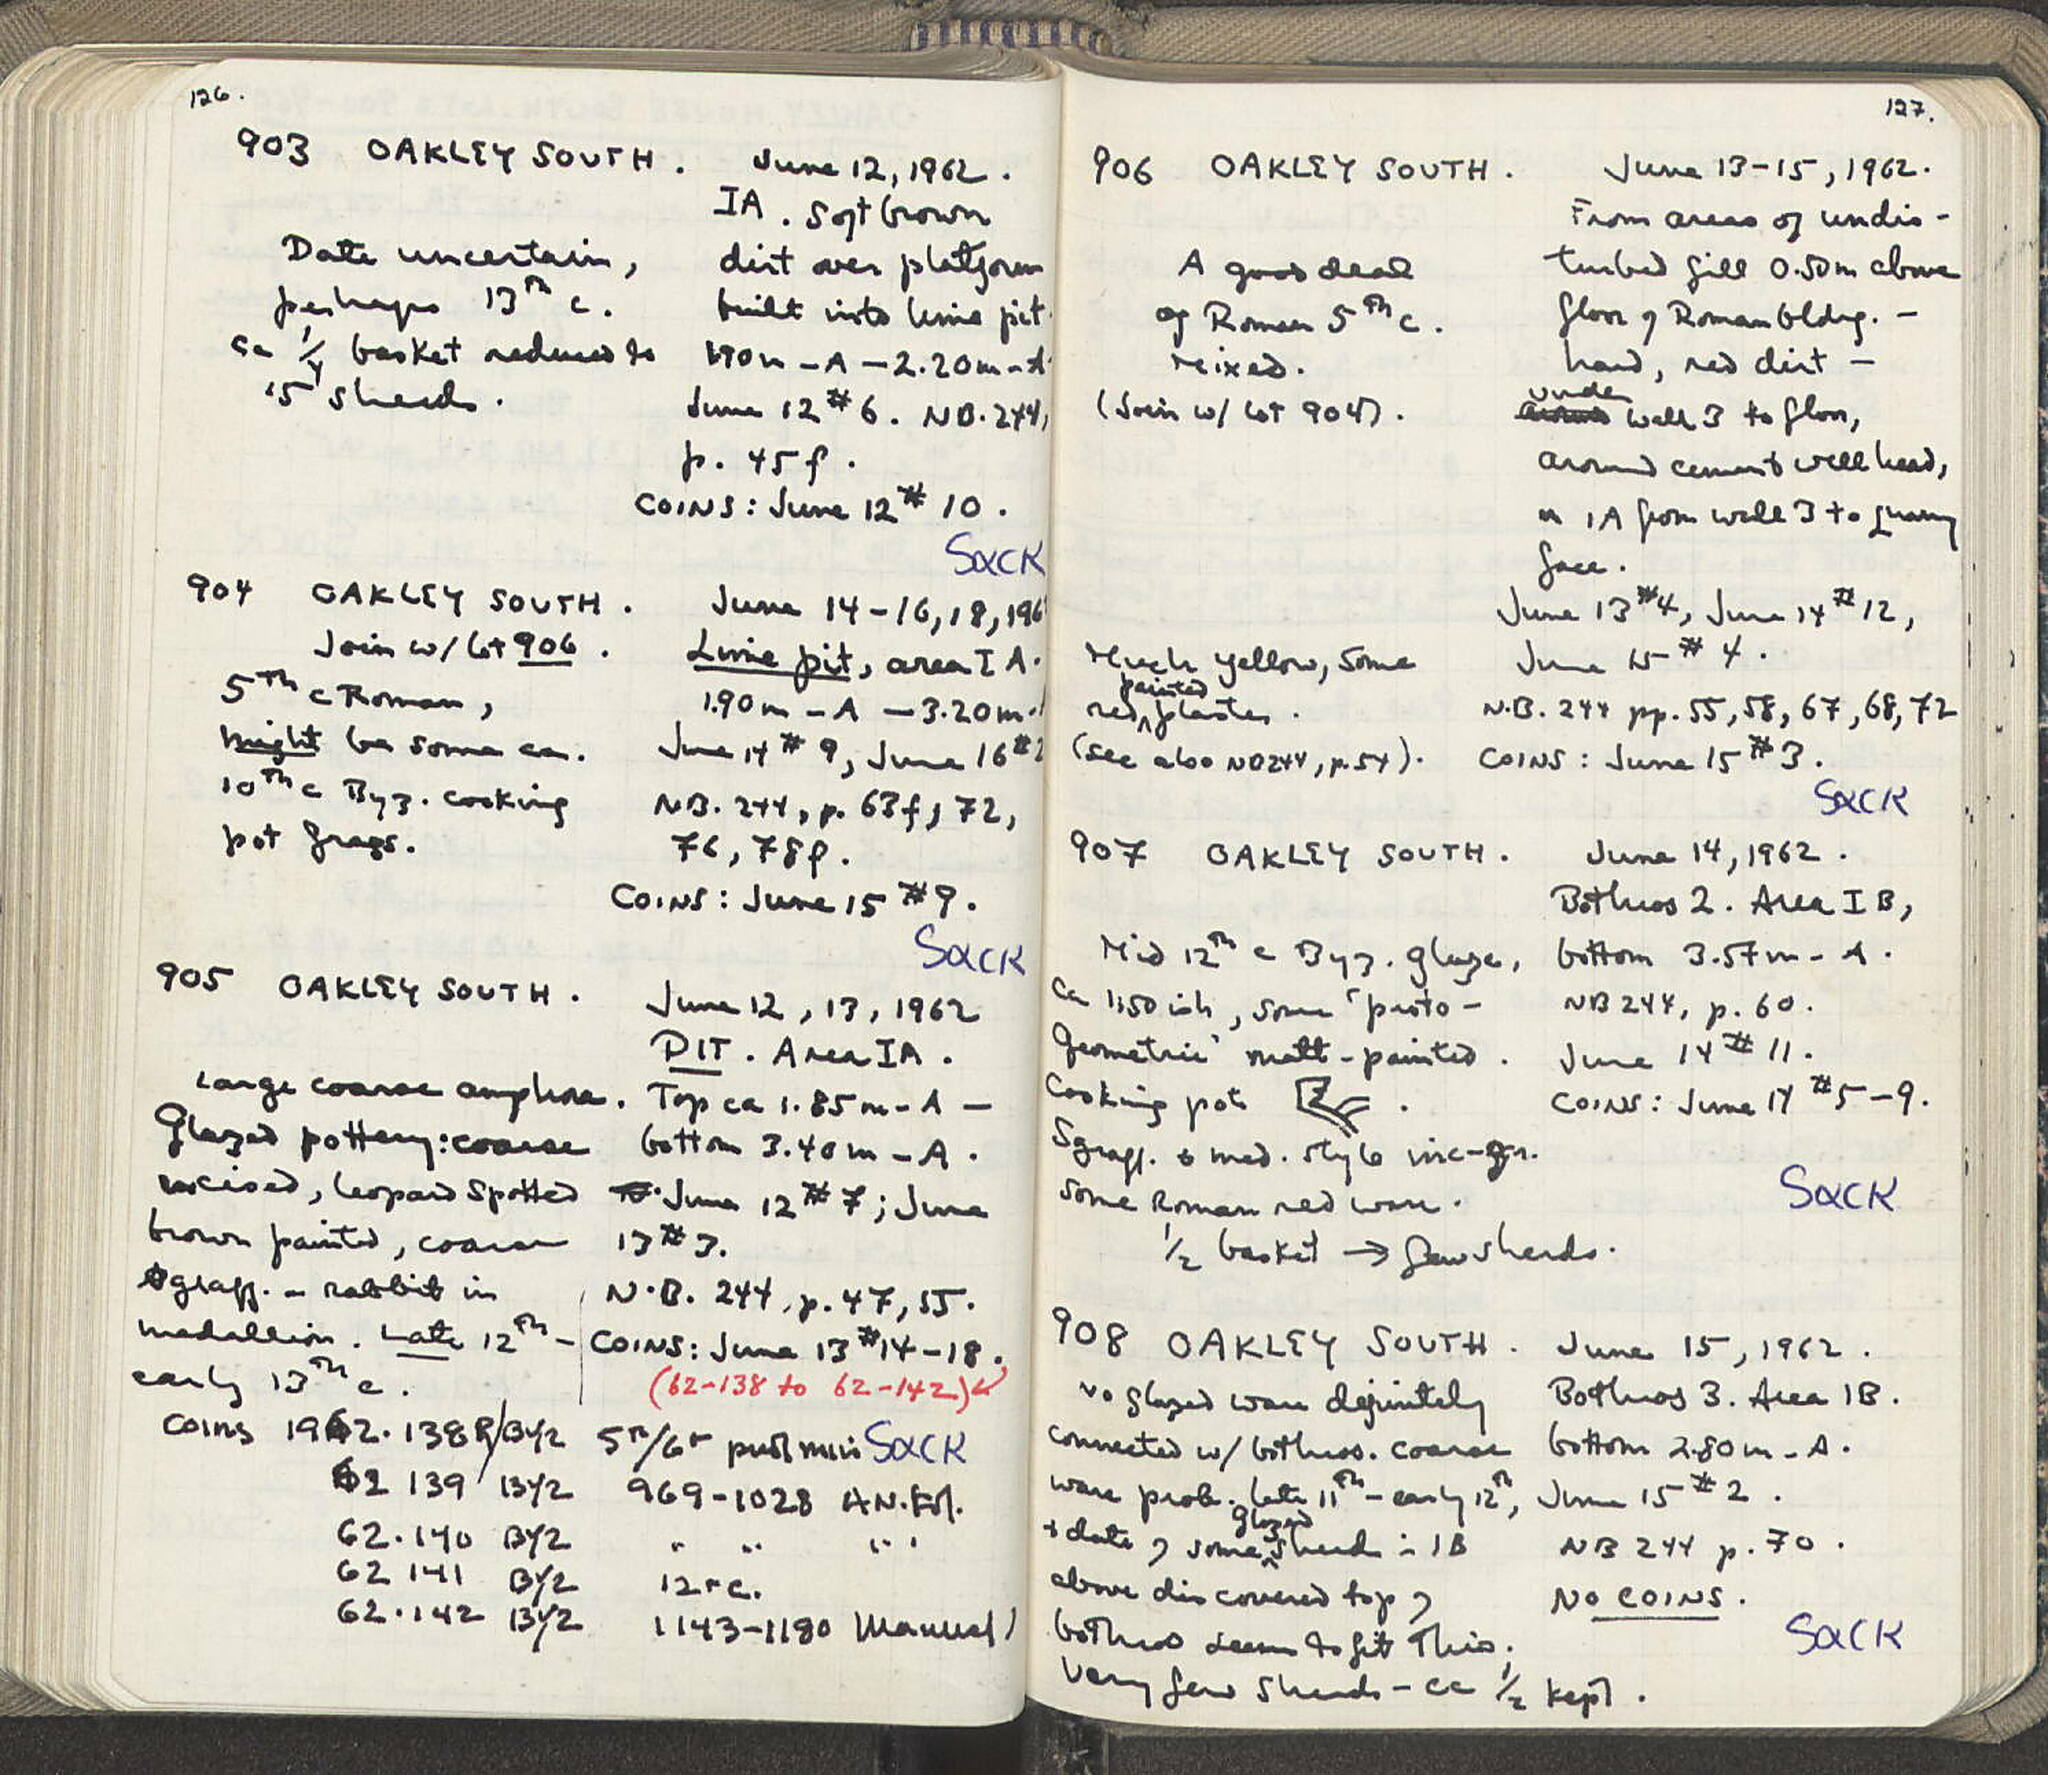 126.
903 OAKLEY SOUTH. June 12, 1962.
IA. Soft brown
Date uncertain, dirt over platform
perhaps 13th c. built into lime pit
ca 1/4 basket reduced to 1.90m-A-2.20m-A
15 sherds. June 12 #6. NB. 244,
p. 45f.
COINS: June 12 #10.
SACK
904 OAKLEY SOUTH. June 14-16, 18, 196
Join w/ lot 906. Lime pit, area IA.
5th c Roman, 1.90m-A-3.20m-
might be some ca. June 14 #9, June 16 #2
10th c Byz. cooking NB. 244, p. 63f, 72,
pot frags. 76, 78f.
COINS: June 15 #9.
SACK
905 OAKLEY SOUTH. June 12, 13, 1962
PIT. Area IA.
Large coarse amphora. Top ca 1.85m-A-
Glazed pottery: coarse bottom 3.40m-A.
incised, leopard spotted June 12 #7; June
brown painted, coarse 13 #3.
sgraff. - rabbit in N.B. 244, p. 47, 55.
medallion. Late 12th- COINS: June 13 #14-18.
early 13th c. (62-138 to 62-142)
Coins 1962. 138 R/BYZ 5th/6th pentanummi SACK
62 139 BYZ 969-1028 AN. Fol.
62.140 BYZ " " " "
62 141 BYZ 12th c.
62.142 BYZ 1143-1180 Manuel I
127.
906 OAKLEY SOUTH. June 13-15, 1962.
From areas of undis-
A good deal turbed fill 0.50m above
of Roman 5th c. floor of Roman bldg. -
Mixed. hard, red dirt -
(Join w/ lot 904). under wall 3 to floor,
around cement well head,
in IA from wall 3 to quarry
face.
June 13 #4, June 14 #12,
Much yellow, some June 15 #4.
red painted plaster. N.B. 244 pp. 55, 58, 67, 68, 72
(see also NB244, p. 54). COINS: June 15 #3.
SACK
907 OAKLEY SOUTH. June 14, 1962.
Bothros 2. Area IB,
Mid 12th c Byz. glaze, bottom 3.57m-A.
ca 1150ish, some 'proto- NB 244, p. 60.
Geometric' matt-painted. June 14 #11.
Cooking pots. COINS: June 14 #5-9.
Sgraff. & med. style inc-gr.
Some Roman red ware. SACK
1/2 basket → few sherds.
908 OAKLEY SOUTH. June 15, 1962.
No glazed ware definitely Bothros 3. Area IB.
connected w/ bothros. Coarse bottom 2.80m-A.
ware prob. late 11th-early 12th, June 15 #2.
+ date of some glazed sherds in IB NB 244 p. 70.
above discovered top of NO COINS.
bothros seems to fit this. SACK
Very few sherds - ca 1/2 kept.